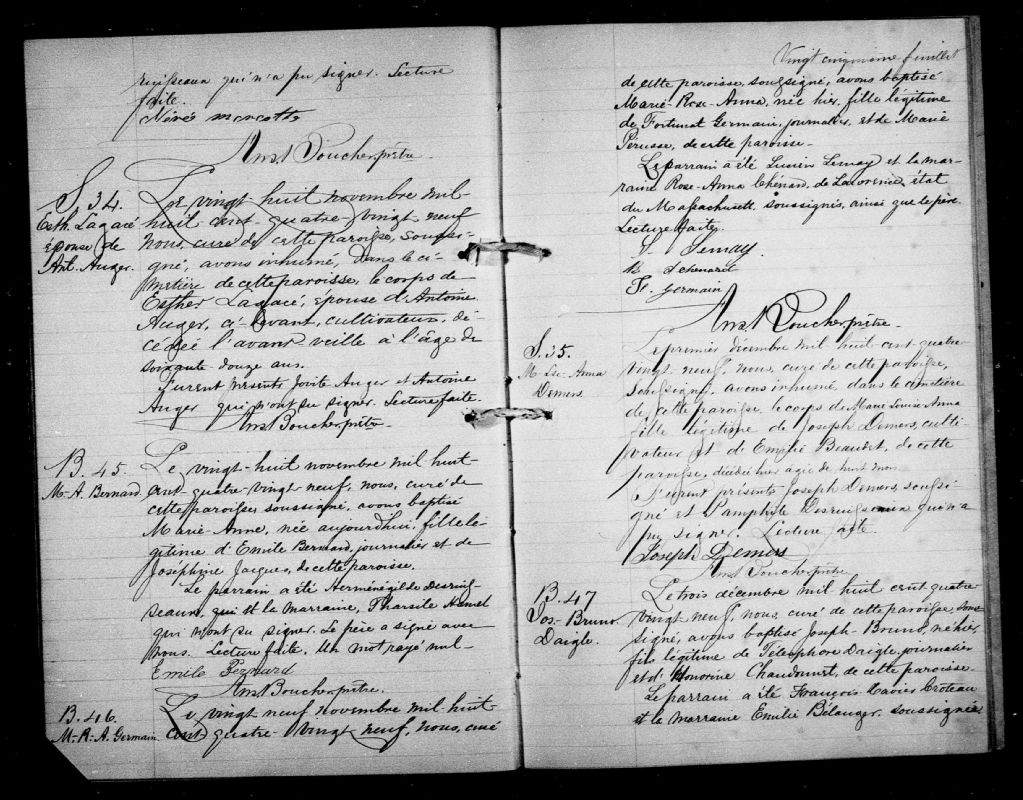 ruisseaux qui n'a pu signer. Lecture
faite.
Néré marcotte
Ans. Boucher ptre.
S. 34.
Esth. Lagacé
épouse de
Ant. Auger.
Le vingt huit novembre mil
huit cent quatre-vingt neuf
nous, curé de cette paroisse, soussi-
gné, avons inhumé, dans le ci-
metière de cette paroisse, le corps de
Esther Lagacé, épouse d'Antoine
Auger, ci-devant, cultivateur, dé-
cédée l'avant veille à l'âge de
soixante douze ans.
Furent présents Jovite Auger et Antoine
Auger qui n'ont su signer. Lecture faite.
Ans. Boucher ptre
B. 45
M.-A. Bernard
Le vingt-huit novembre mil huit-
cent-quatre-vingt neuf, nous, curé de
cette paroisse soussigné, avons baptisé
Marie-Anne, née aujourd'hui, fille lé-
gitime d'Emile Bernard, journalier et de
Joséphine Jacques, de cette paroisse.
Le parrain a été Herménégilde Desruis-
seaux, qui et la marraine, Tharsile Hamel
qui n'ont su signer. Le père a signé avec
nous. Lecture faite. Un mot rayé nul-
Emile Bernard
Ans. Boucher ptre.
B. 46.
M.-R.-A. Germain
Le vingt neuf novembre mil huit-
cent quatre-vingt neuf, nous, curé
Vingt cinquième feuillet
de cette paroisse, soussigné, avons baptisé
Marie-Rose-Anna, née hier, fille légitime
de Fortunat Germain, journalier, et de Marie
Pérusse, de cette paroisse.
Le parrain a été Lucien Lemay et la mar-
raine Rose-Anna Chénard, de Lawrence, état
du Massachusett, soussignés, ainsi que le père.
Lecture faite.
L. Lemay.
R. Schenard
F. Germain
Ans. Boucher ptre.
S. 35.
M.-Lse-Anna
Demers.
Le premier décembre mil huit cent quatre-
vingt neuf, nous, curé de cette paroisse,
soussigné, avons inhumé, dans le cimetière
de cette paroisse, le corps de Marie Louise Anna
fille légitime de Joseph Demers, culti-
vateur et d'Emilie Beaudet, de cette
paroisse, décédée hier agée de huit mois
Furent présents Joseph Demers, soussi-
gné et Pamphile Desruisseaux qui n'a
pu signer. Lecture faite.
Joseph Demers
Ans. Boucher ptre
B. 47
Jos.-Bruno
Daigle.
Le trois décembre mil huit cent quatre
vingt neuf, nous, curé de cette paroisse, sous-
signé, avons baptisé Joseph-Bruno, né hier,
fils légitime de Télesphore Daigle, journalier
et d'Honorine Chaudonnet, de cette paroisse.
Le parrain a été François Xavier Croteau
et la marraine Emilie Bélanger, soussignés